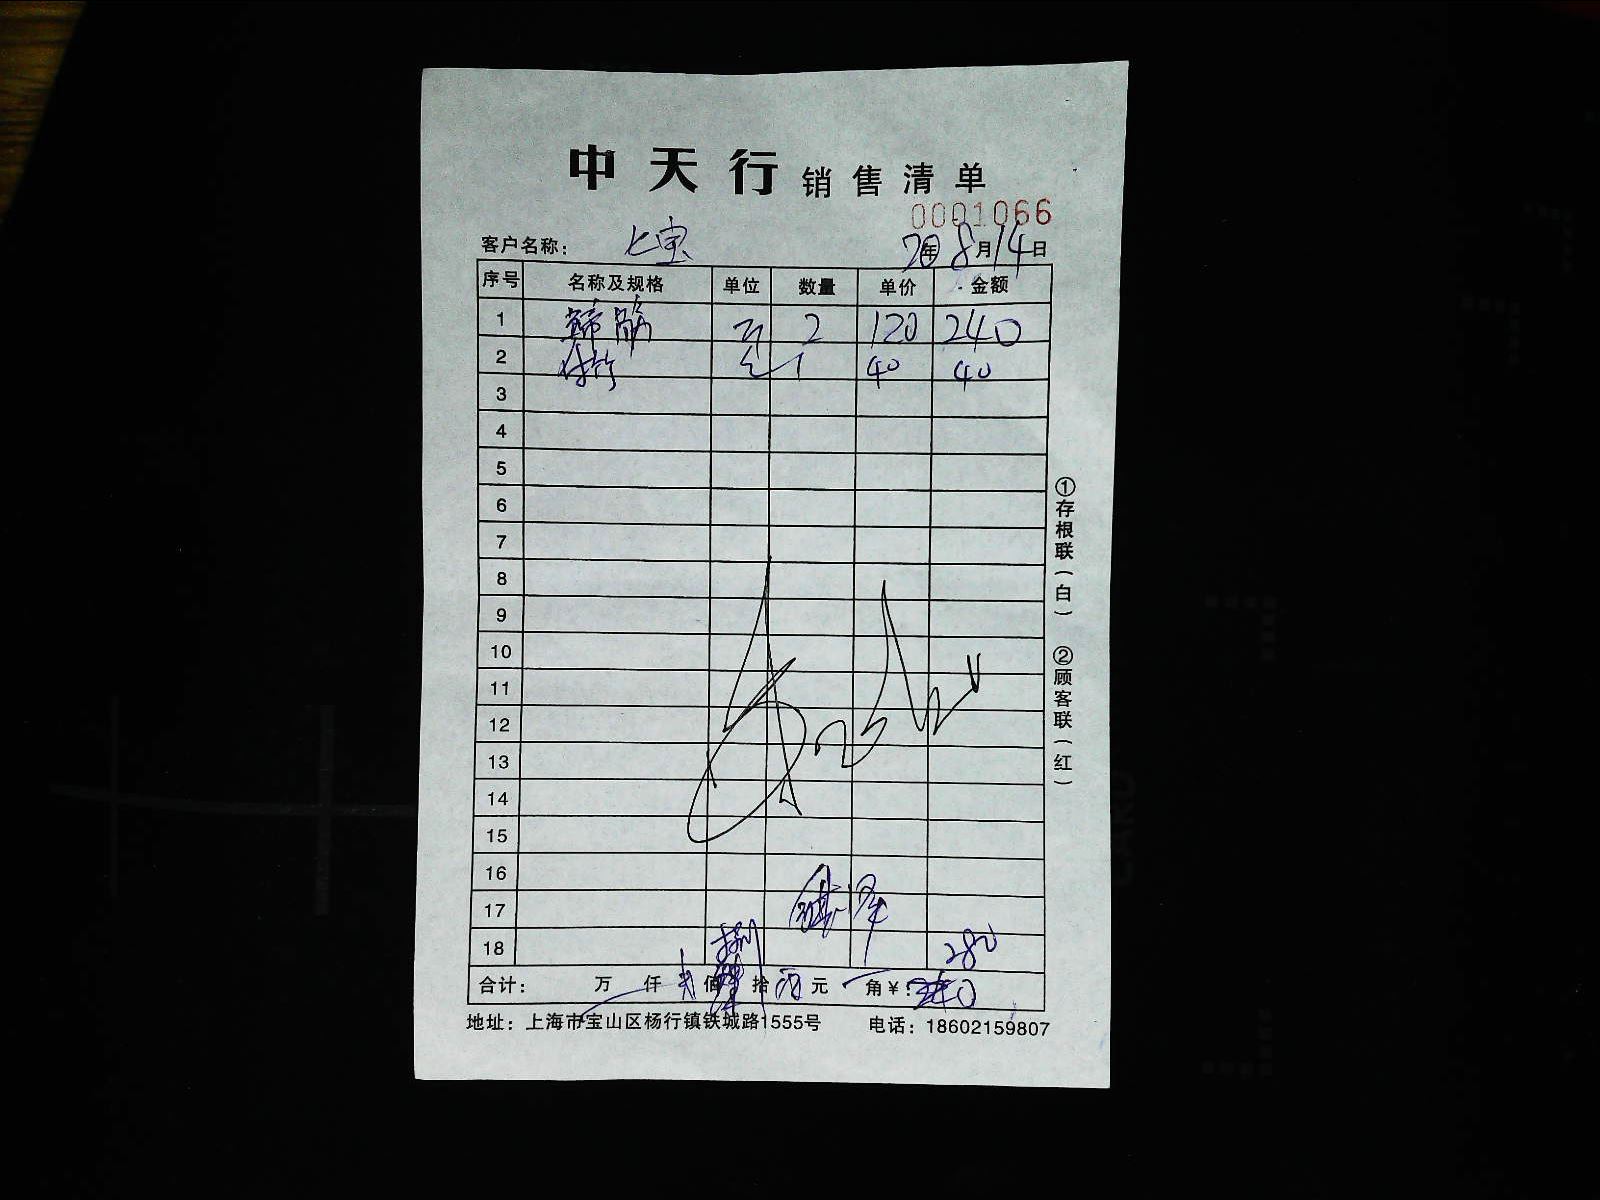 中天行 销售清单
0001066
客户名称： 七宝 20年8月14日
序号 名称及规格 单位 数量 单价 金额
1 蹄筋 2 120 240
2 1 40 40
3
4
5
6
7
8
9
10
11
12
13
14
15
16
17
18 280
合计： 万 仟 佰 拾 元 角 ¥：
地址：上海市宝山区杨行镇铁城路1555号 电话：18602159807
①存根联（白） ②顾客联（红）